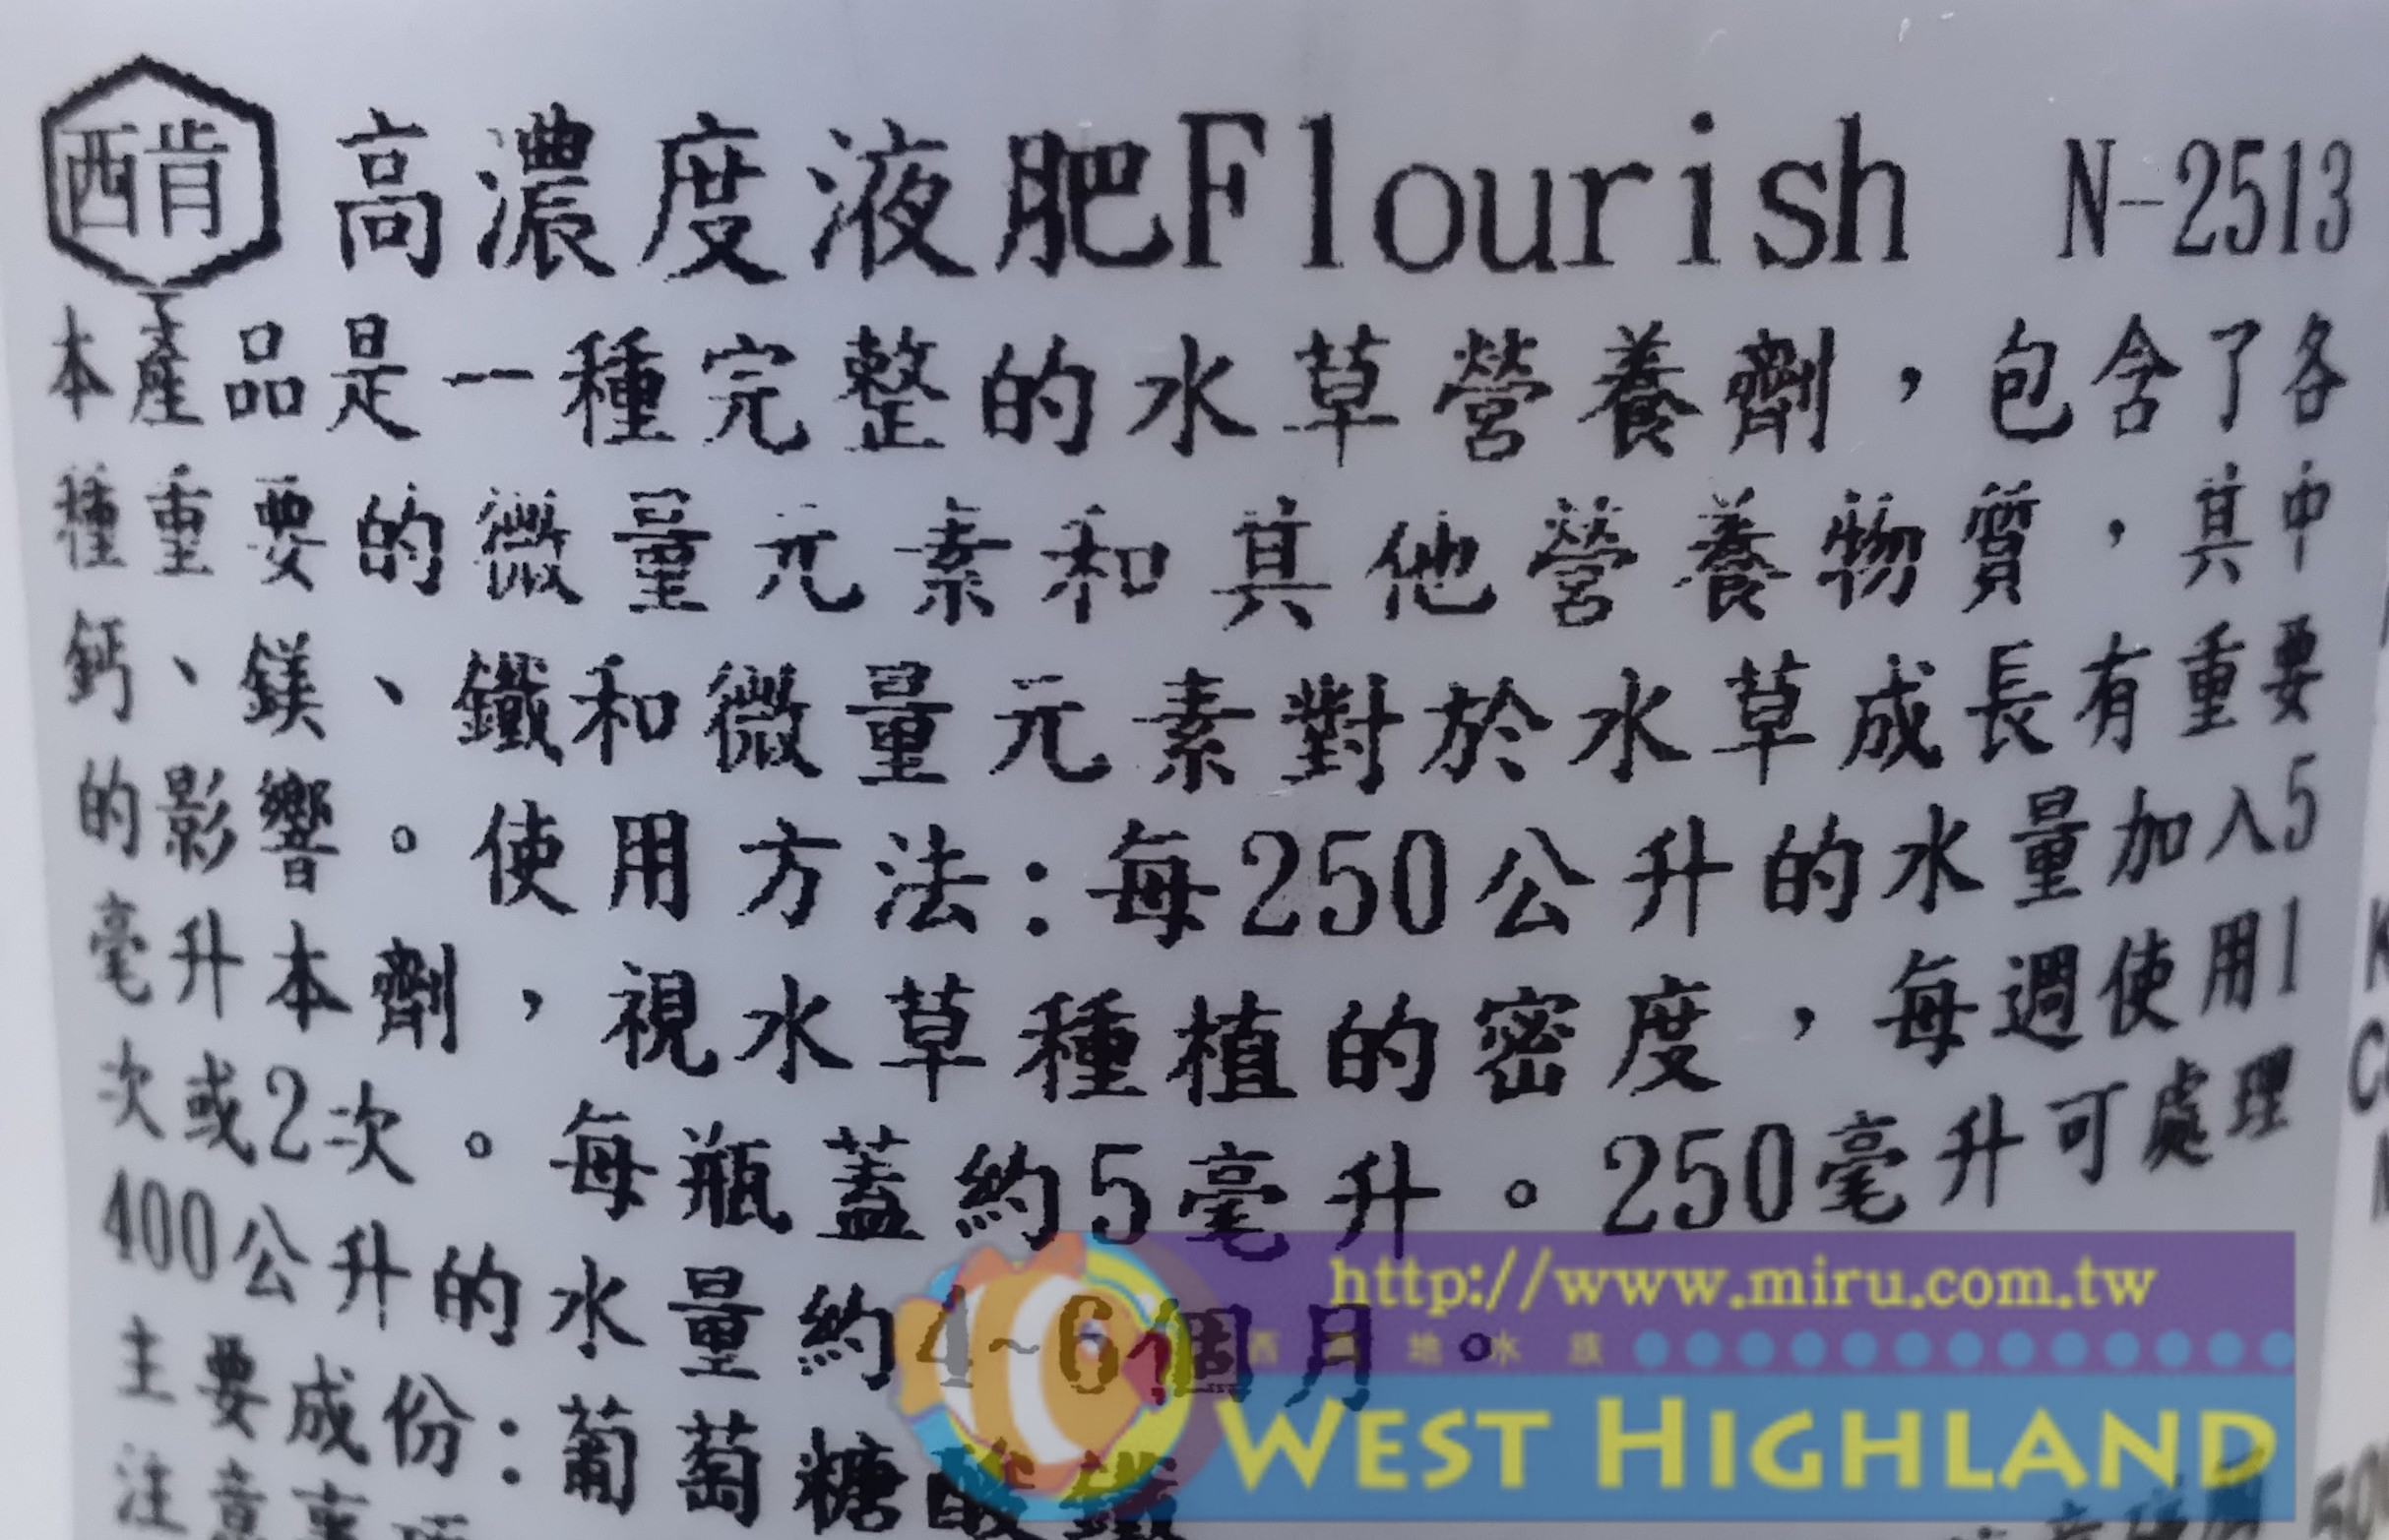 西肯 高濃度液肥Flourish N-2513
本產品是一種完整的水草營養劑，包含了各
種重要的微量元素和其他營養物質，其中
鈣、鎂、鐵和微量元素對於水草成長有重要
的影響。使用方法:每250公升的水量加入5
毫升本劑，視水草種植的密度，每週使用1
次或2次。每瓶蓋約5毫升。250毫升可處理
400公升的水量約4~6個月。
主要成份:葡萄糖酸鐵
注意事項
http://www.miru.com.tw
西高地水族
WEST HIGHLAND